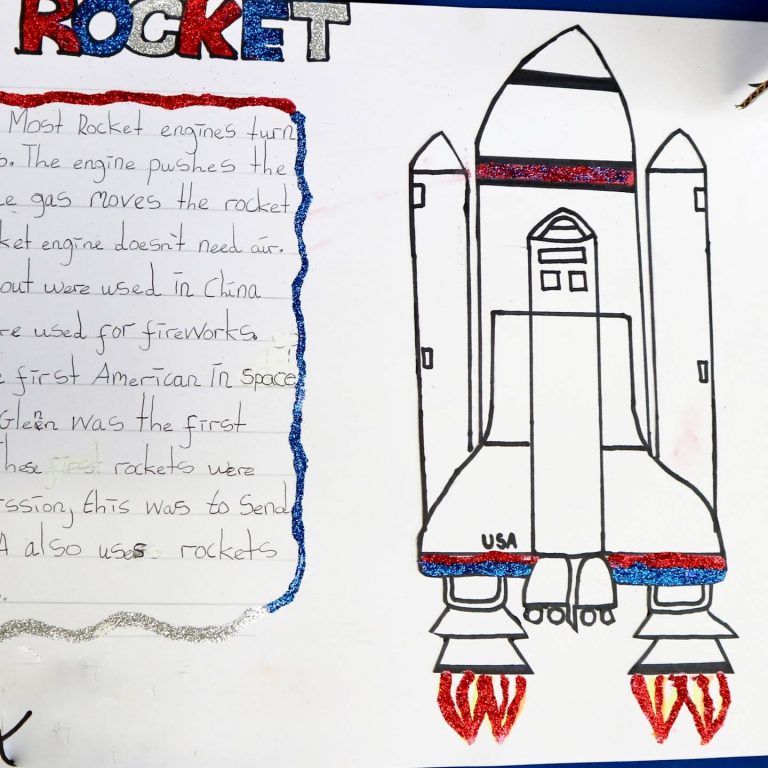 ROCKET
Most Rocket engines turn
. The engine pushes the
gas moves the rocket
ket engine doesn't need air.
out were used in China
re used for fireworks.
first American in space
Glenn was the first
These first rockets were
ission, this was to Send
A also uses rockets
USA